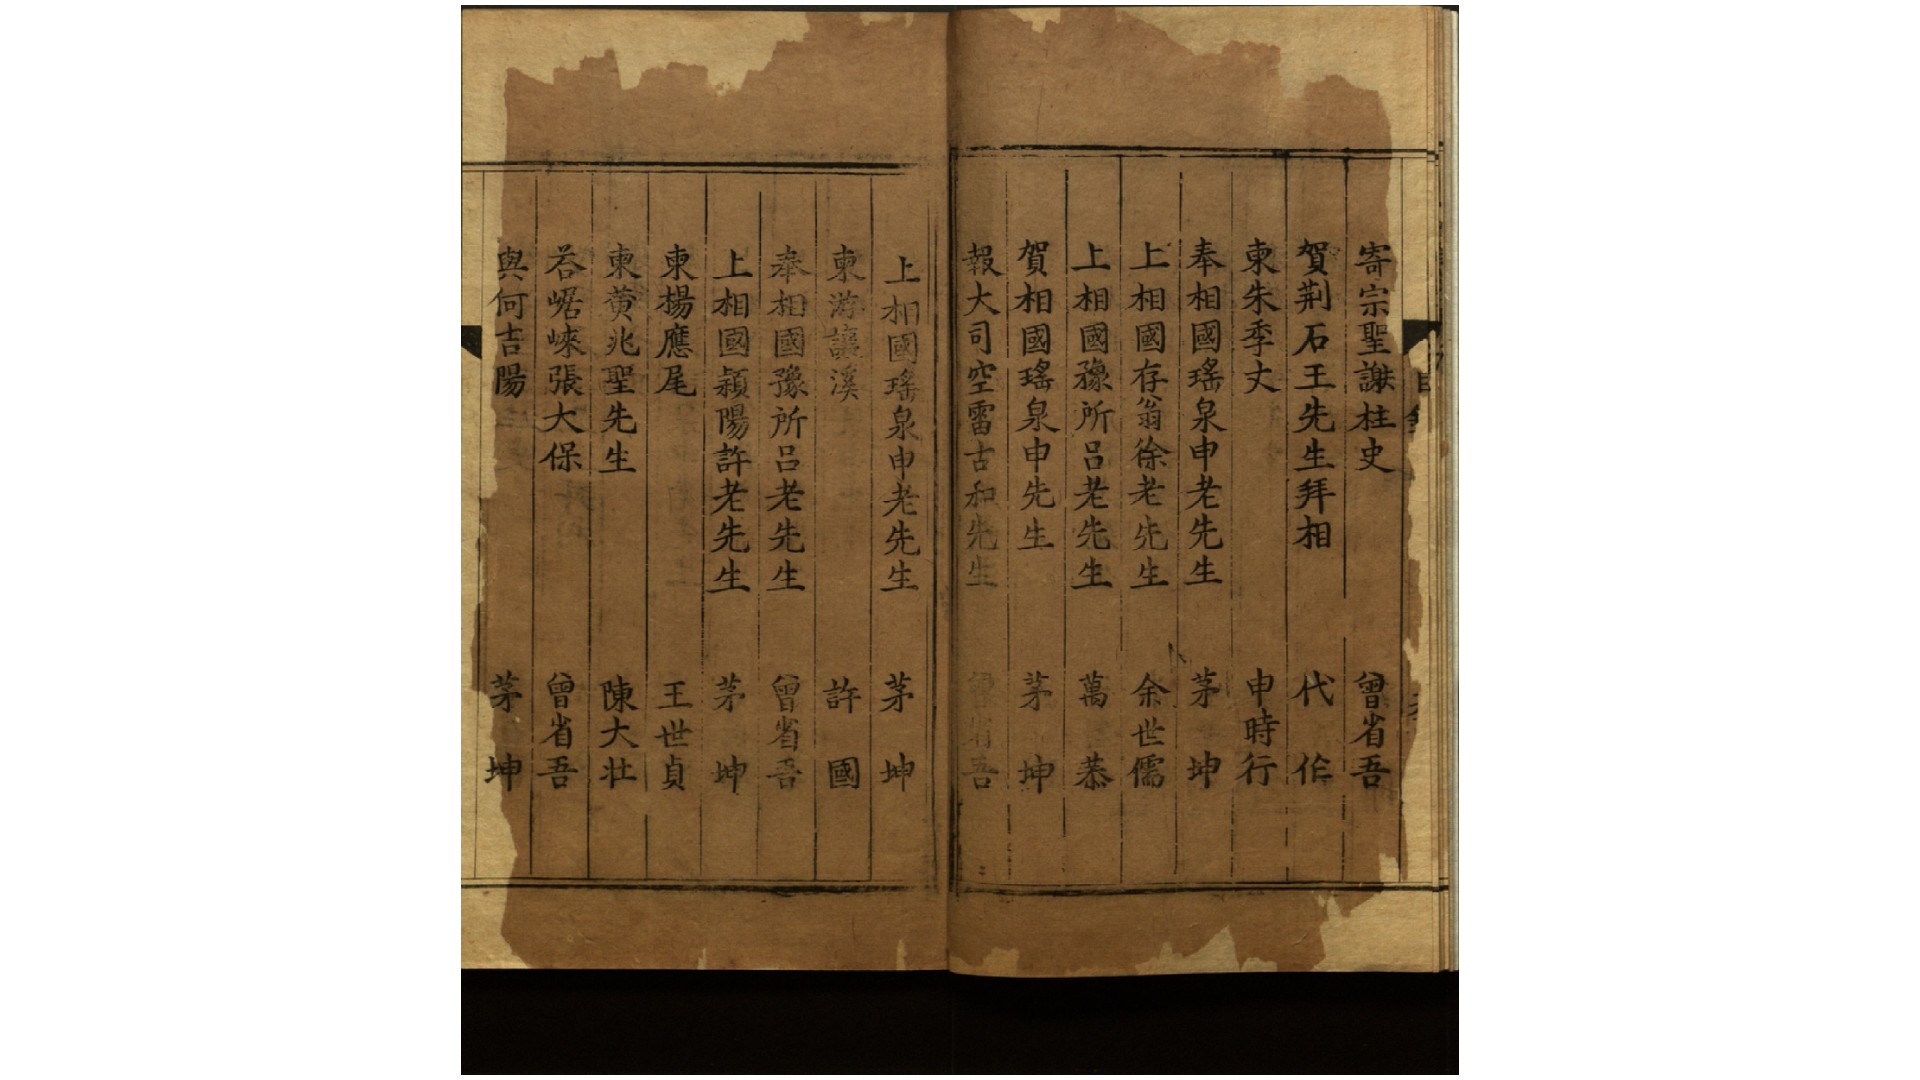 寄宗聖謝柱史 曾省吾
賀荆石王先生拜相 代作
柬朱季丈 申時行
奉相國瑤泉申老先生 茅坤
上相國存翁徐老先生 余世儒
上相國豫所吕老先生 萬恭
賀相國瑤泉申先生 茅坤
報大司空雷古和先生 曾省吾
上相國瑤泉申老先生 茅坤
柬游讓溪 許國
奉相國豫所吕老先生 曾省吾
上相國潁陽許老先生 茅坤
柬楊應尾 王世貞
柬黄兆聖先生 陳大壯
荅崌崍張大保 曾省吾
與何吉陽 茅坤